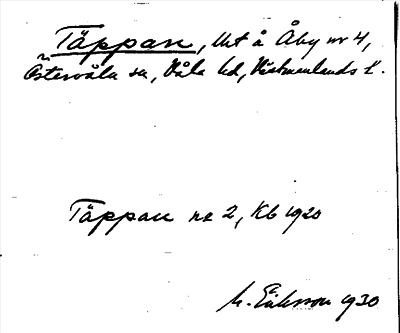 Täppan, lht å Åby nr 4,
Östervåla sn, Våla hd, Västmanlands l.
Täppan nr 2, Kb 1920
M. Eriksson 1930